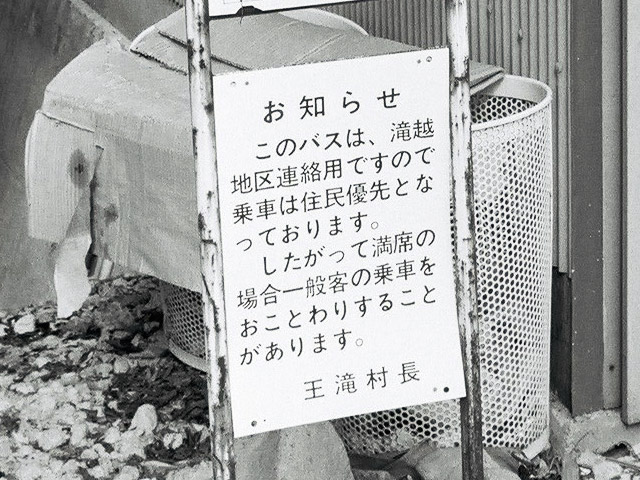 お知らせ
このバスは、滝越
地区連絡用ですので
乗車は住民優先とな
っております。
したがって満席の
場合一般客の乗車を
おことわりすること
があります。
王滝村長